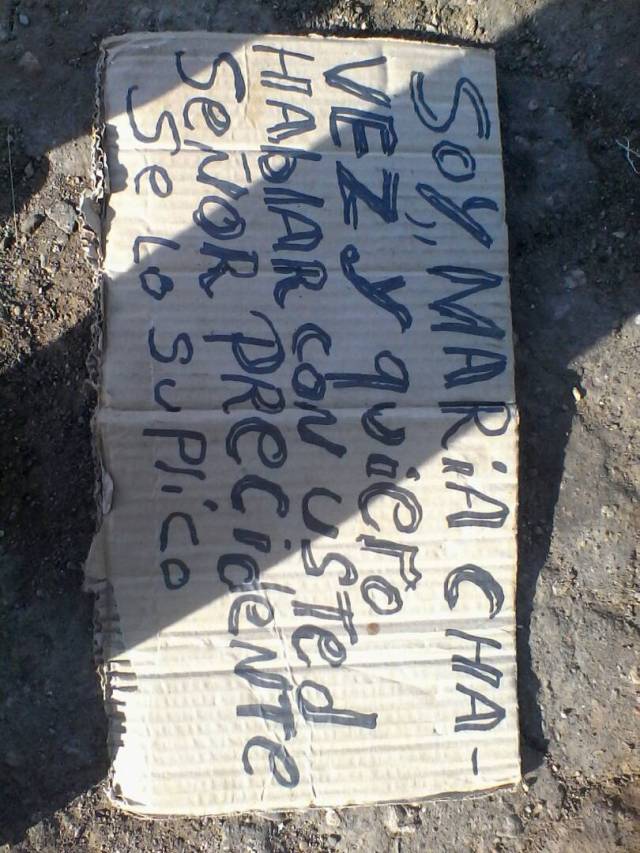 SOY,, MARiA CHA-
VEZ y quiero
HAblAR CON USTEd
SEÑOR PRECidENTE
Se lo suplico